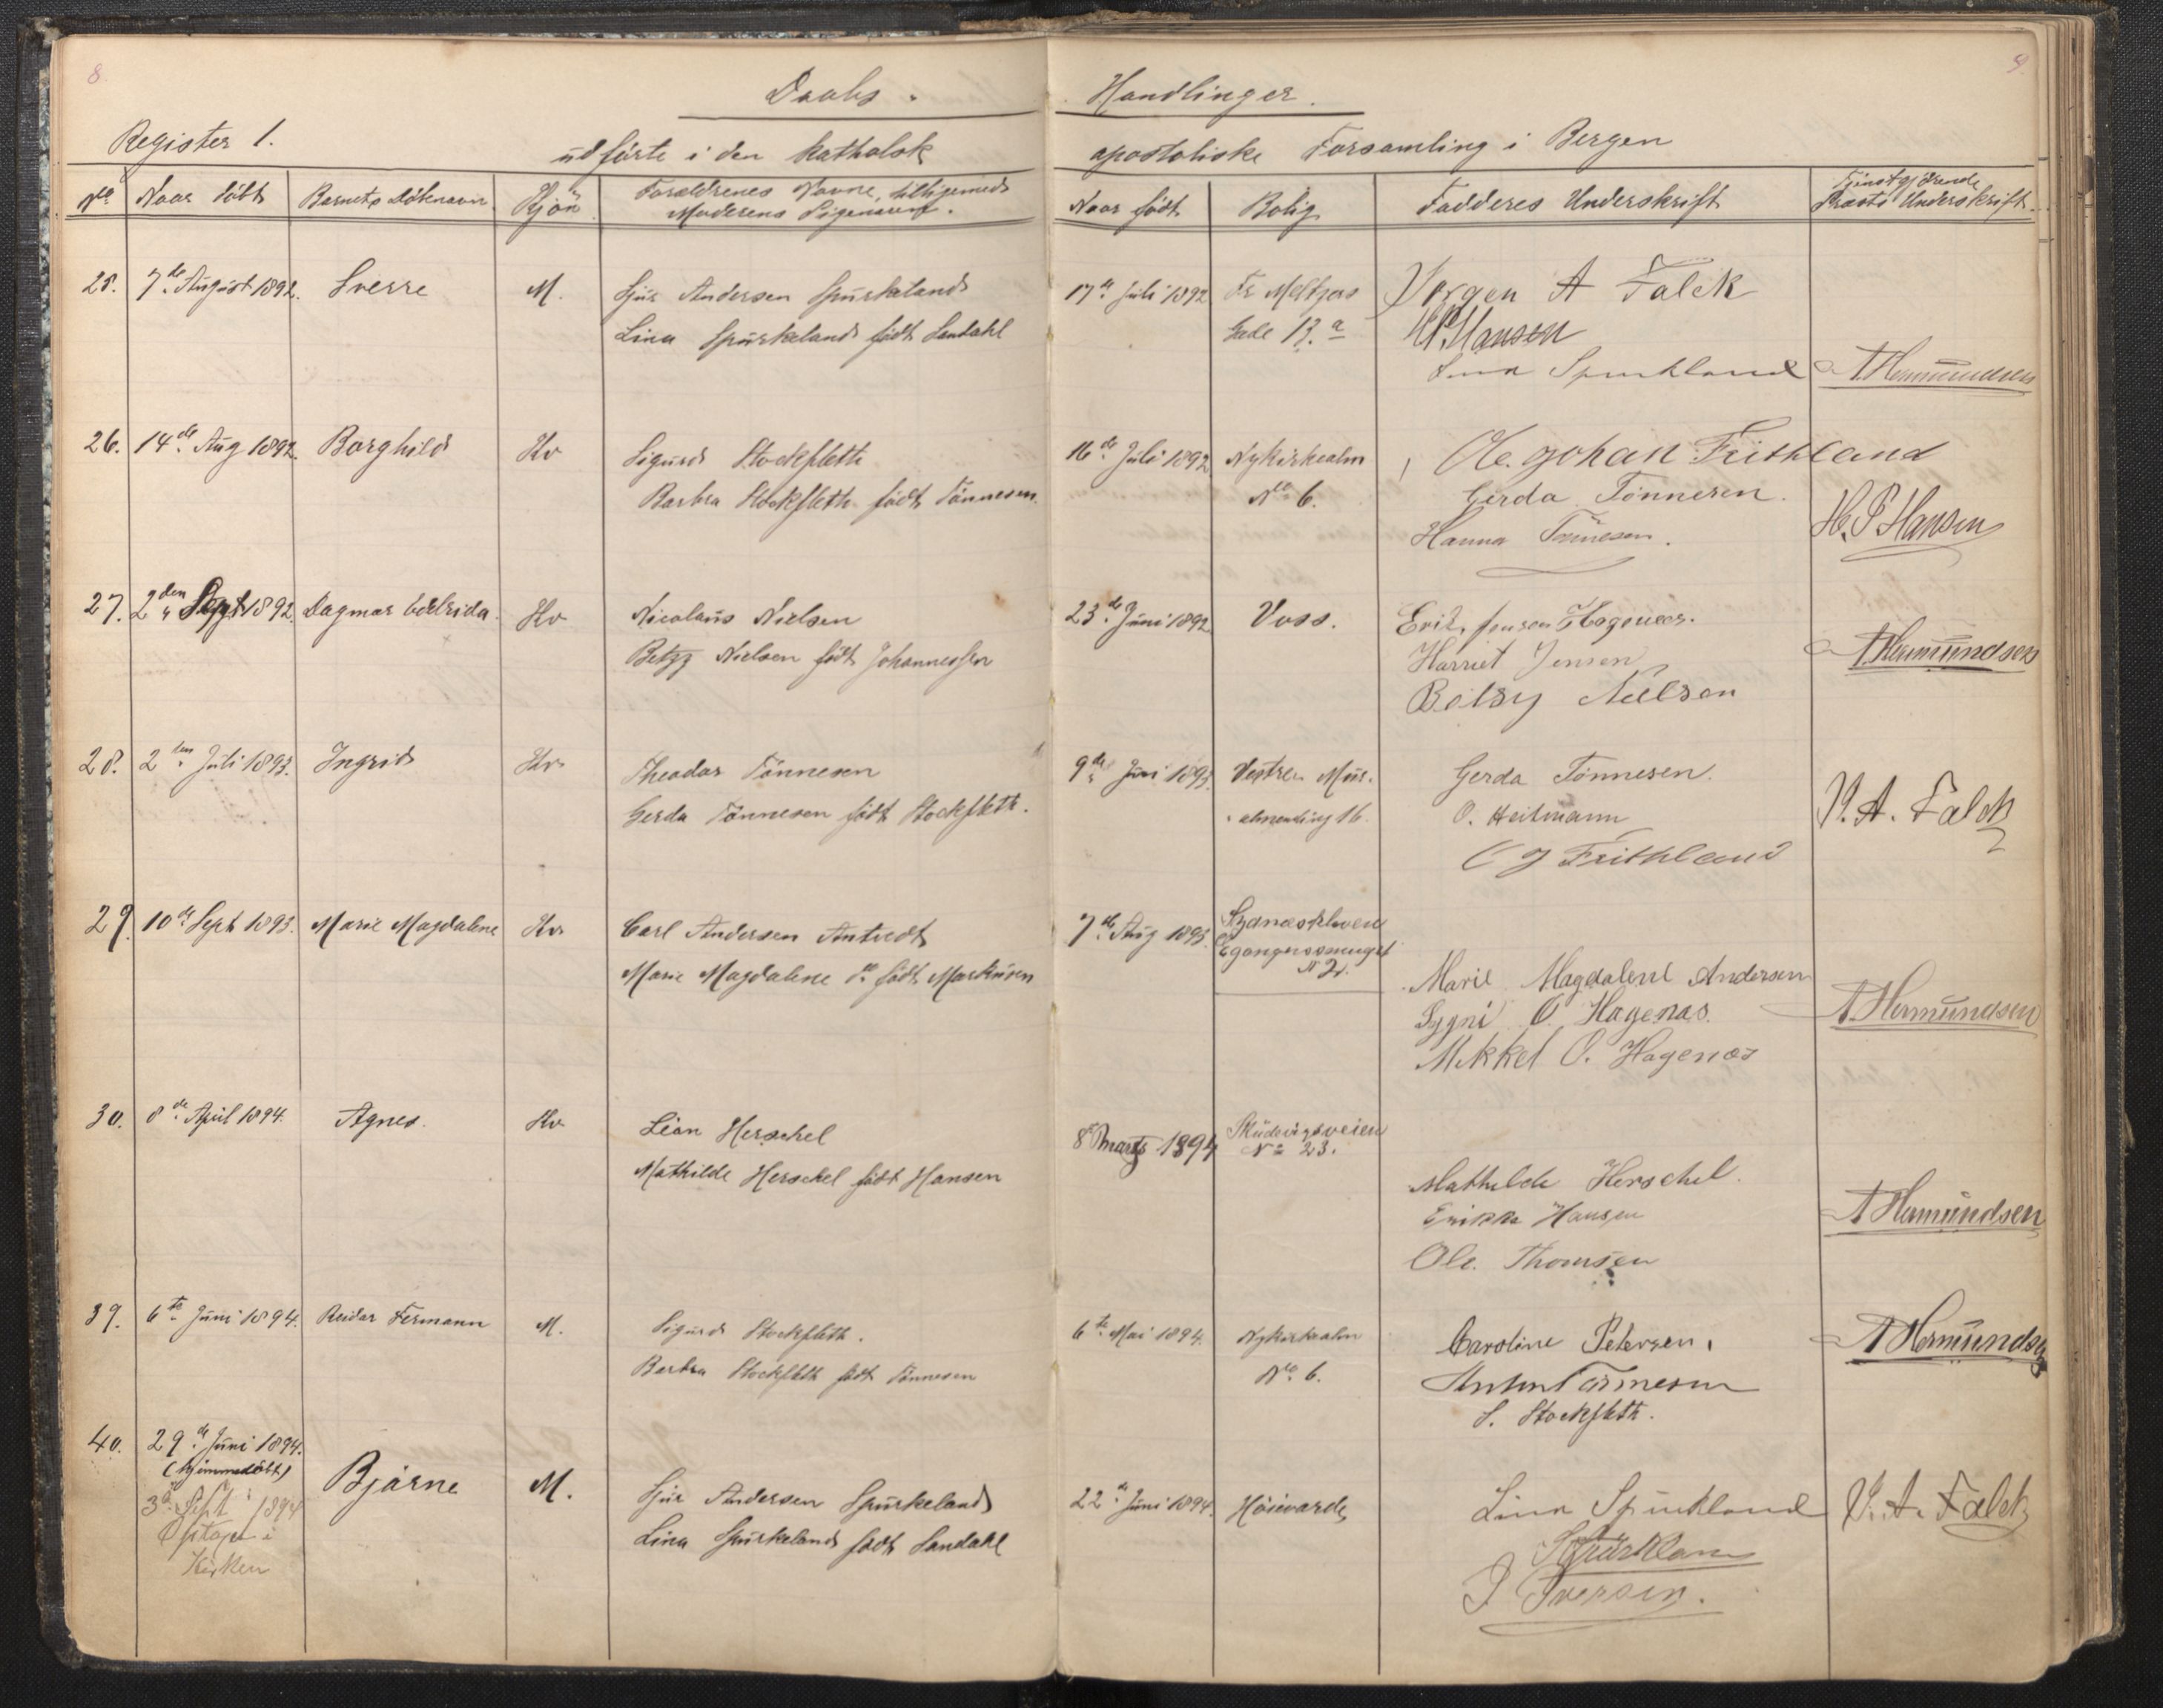 8.
9.
Daabs-Handlinger.
Register 1.
udførte i den katholsk apostoliske Forsamling i Bergen
No Naar døbt Barnets Døbenavn Kjøn Forældrenes Navne, tilligemed Moderens Pigenavn. Naar født Bolig Fadderes Underskrift Tjenstgjørende Præsts Underskrift.
25. 7de August 1892. Sverre M. Sjur Andersen Spurkeland 17de Juli 1892 Fr Meltzers Jørgen A Falck
Lina Spurkeland født Sandahl Gade 13.a H.P. Hansen
Lina Spurkland A Hermundsen
26. 14de Aug 1892. Borghild Kv Sigurd Stockfleth 16de Juli 1892 Nykirkealm Ole Johan Frithland
Barbra Stockfleth født Tønnesen. No 6. Gerda Tønnesen.
Hanna Tönnesen. H. P Hansen
27. 2den Sept 1892. Dagmar Kv Nicolaus Nielsen 23de Juni 1892 Voss. Erik Jensen
Betzy Nielsen født Johannessen Harriet Jensen A Hermundsen
Betsy Nielsen
28. 2den Juli 1893. Ingrid Kv Theodor Tönnesen 9de Juni 1893. Vestre Mur- Gerda Tønnesen.
Gerda Tönnesen født Stockfleth. almending 16. O. Heitmann J. A. Falck
O J Frithland
29. 10de Sept 1893. Marie Magdalene Kv Carl Andersen 7de Aug 1893.
Marie Magdalene do født Markusen N 2.
Marie Magdalene Andersen
O. Hagenæs. A. Hermundsen
Mikkel O. Hagenæs
30. 8de April 1894. Agnes. Kv Leon Herschel 8de marts 1894 Skudevigsveien
Mathilde Herschel født Hansen No 23.
Mathilde Herschel.
Erikka Hansen A Hermundsen
Ole Thomsen
39. 6te Juni 1894. Reidar Hermann M. Sigurd Stockfleth. 6te Mai 1894. Nykirkealm Caroline Petersen. A Hermundsen
Barbra Stockfleth født Tønnesen No 6. Anton Tönnesen
S. Stockfleth.
40. 29de Juni 1894. Bjarne M. Sjur Andersen Spurkeland 22de Juni 1894. Höievarde Lina Spurkland J. A. Falck
(hjemmedøbt) Lina Spurkeland født Sandahl
3d Sept 1894 S Spurkland
Optagen i J Iversen.
Kirken